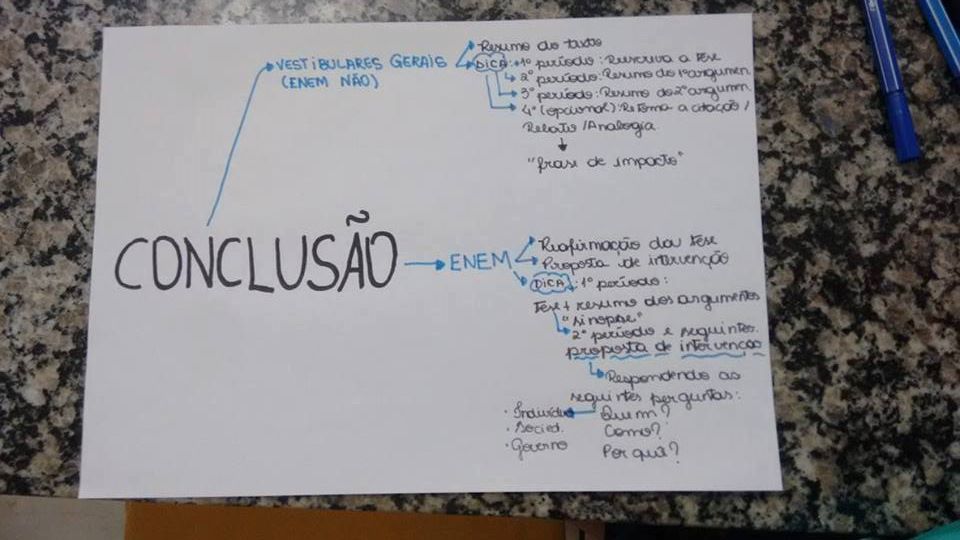 VESTIBULARES GERAIS
(ENEM NÃO)
Resumo do texto
DICA: 1º período: Reescreva a tese
2º período: Resumo do 1º argumen.
3º período: Resumo do 2º argumen.
4º (opcional): Retoma a citação /
Relato / Analogia
"frase de impacto"
CONCLUSÃO
ENEM
Reafirmação da tese
Proposta de intervenção
DICA: 1º período:
Tese + resumo dos argumentos
"sinopse"
2º período e seguintes:
proposta de intervenção
Respondendo as
seguintes perguntas:
· Indivíduo
Quem?
· Socied.
Como?
· Governo
Por quê?